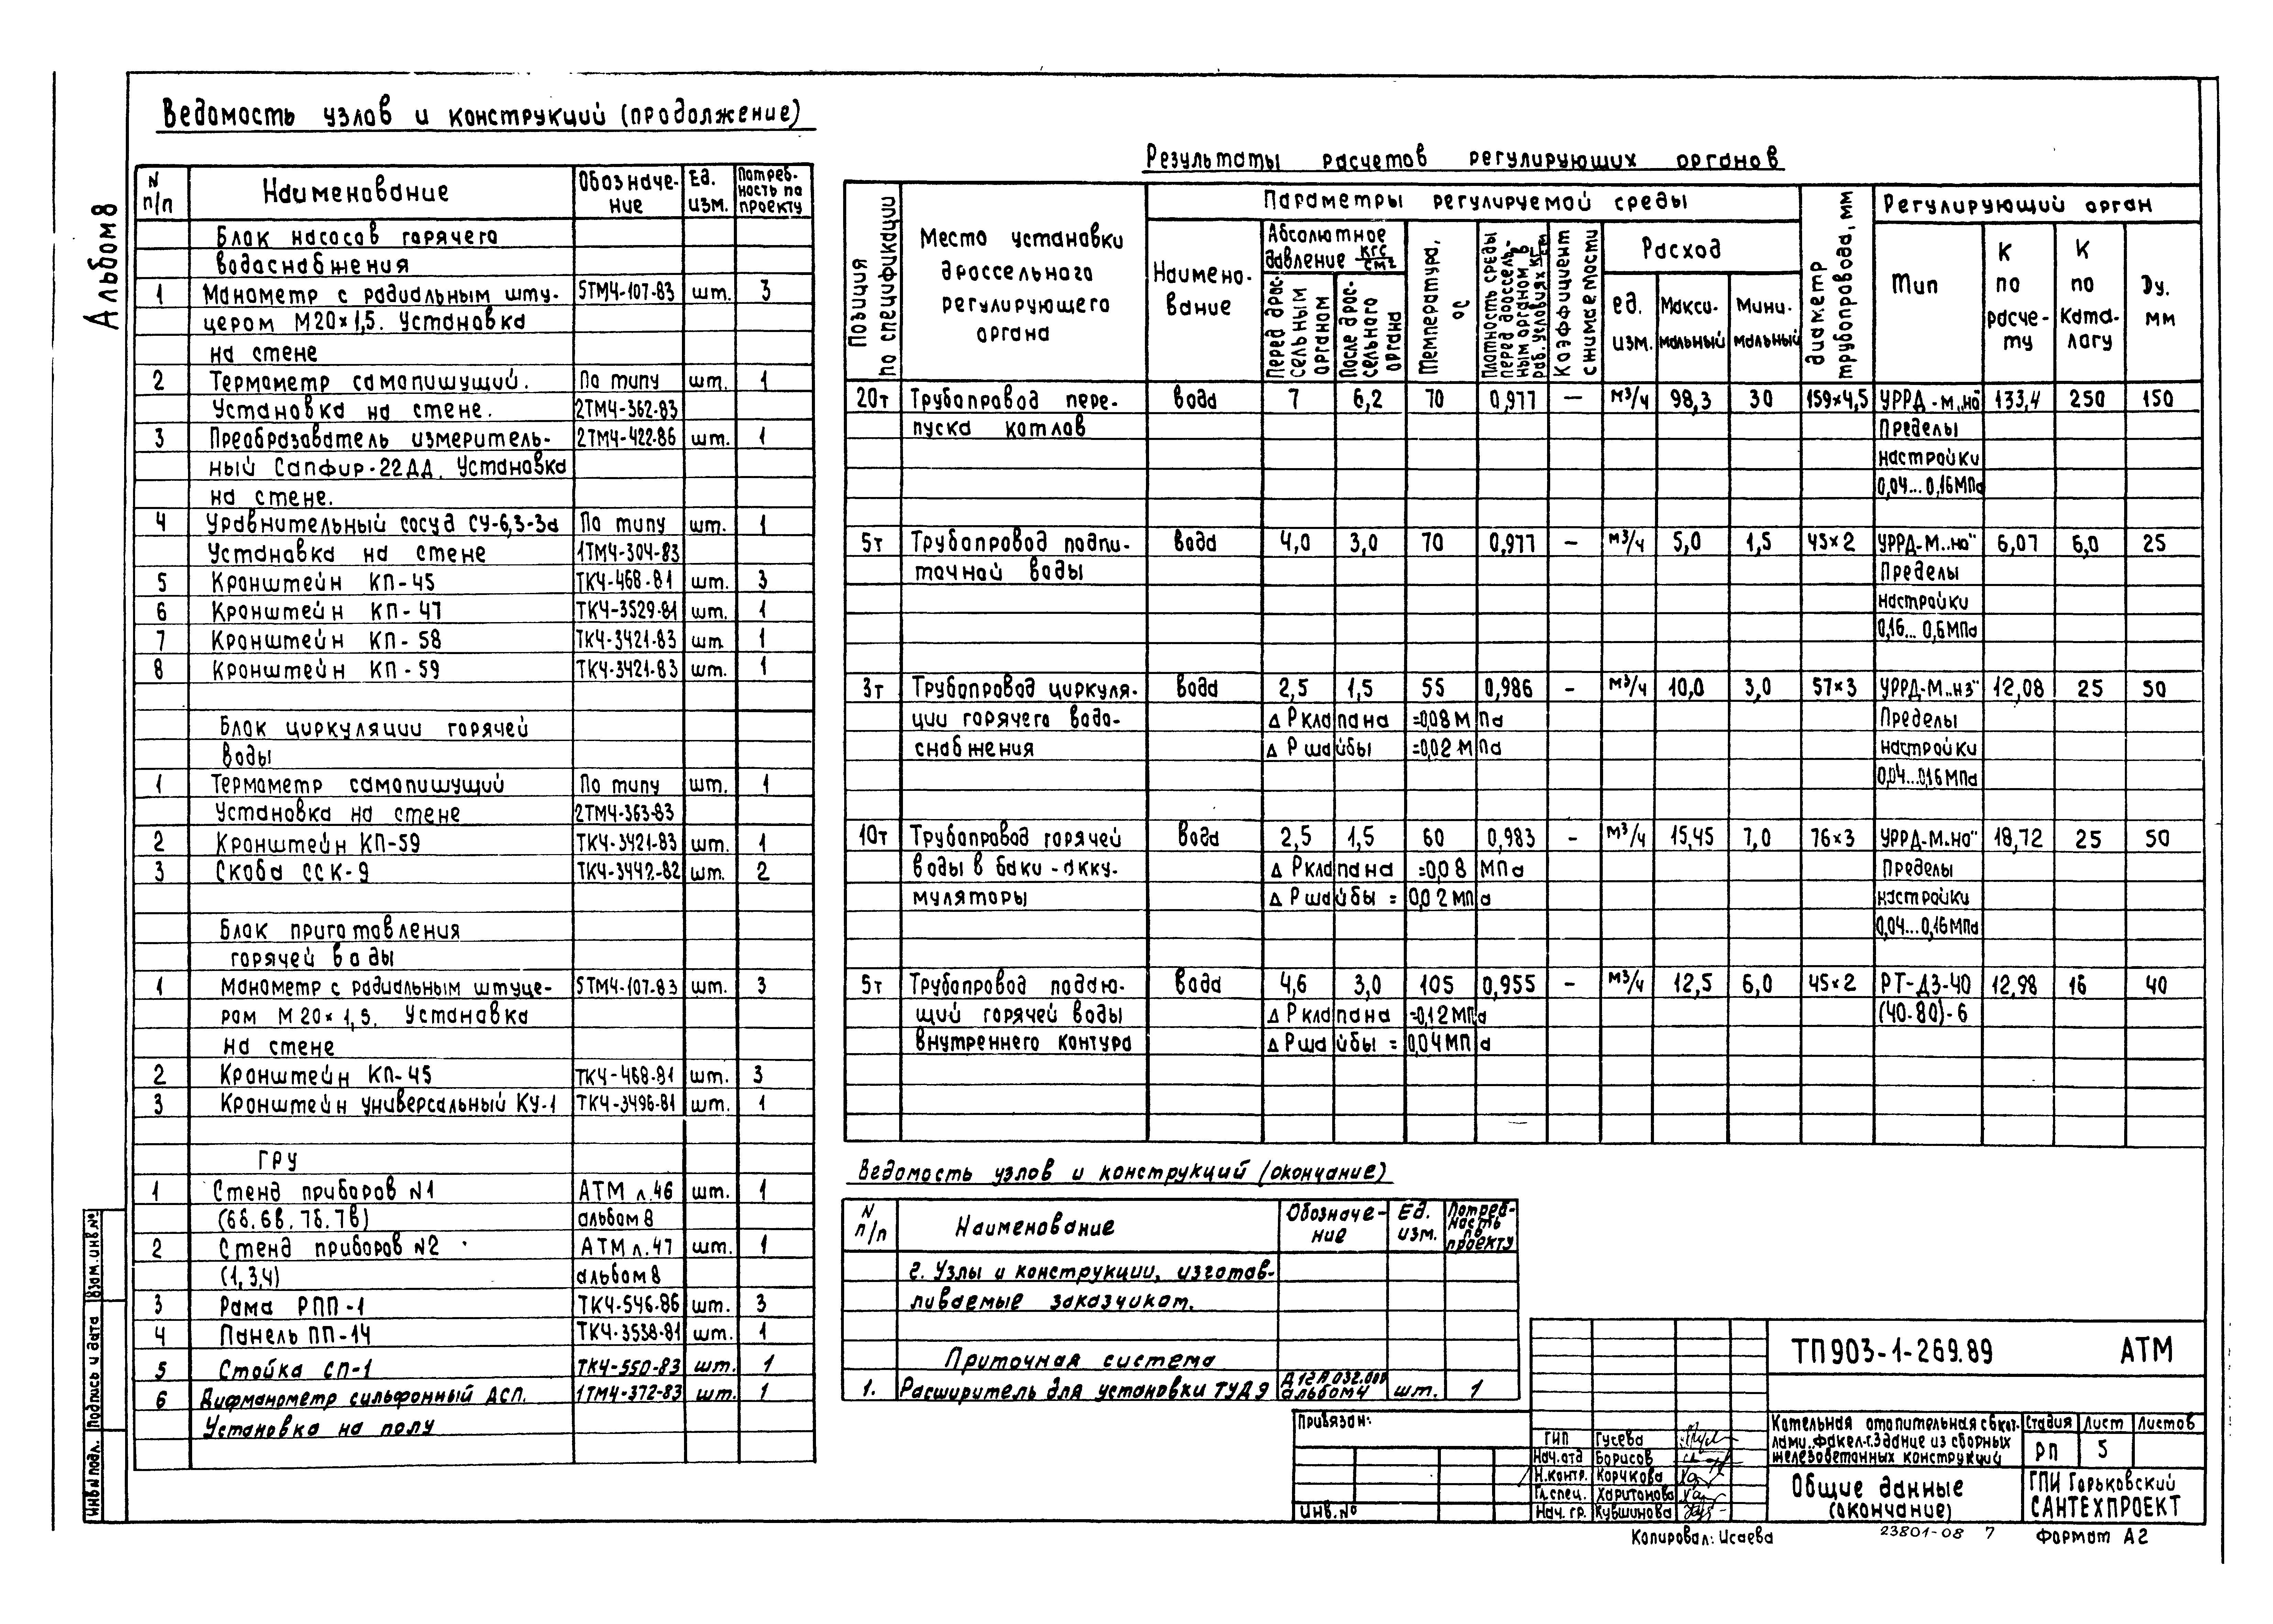 Альбом 8
Ведомость узлов и конструкций (продолжение)
N п/п | Наименование | Обозначе-ние | Ед. изм. | Потреб-ность по проекту
Блок насосов горячего
водоснабжения
1 | Манометр с радиальным шту- | 5ТМ4-107-83 | шт. | 3
цером М20×1,5. Установка
на стене
2 | Термометр самопишущий. | По типу | шт. | 1
Установка на стене. | 2ТМ4-362-83
3 | Преобразователь измеритель- | 2ТМ4-422-86 | шт. | 1
ный Сапфир-22ДД. Установка
на стене.
4 | Уравнительный сосуд СУ-6,3-3а | По типу | шт. | 1
Установка на стене | 1ТМ4-304-83
5 | Кронштейн КП-45 | ТК4-468-81 | шт. | 3
6 | Кронштейн КП-47 | ТК4-3529-81 | шт. | 1
7 | Кронштейн КП-58 | ТК4-3421-83 | шт | 1
8 | Кронштейн КП-59 | ТК4-3421-83 | шт. | 1
Блок циркуляции горячей
воды
1 | Термометр самопишущий | По типу | шт. | 1
Установка на стене | 2ТМ4-363-83
2 | Кронштейн КП-59 | ТК4-3421-83 | шт. | 1
3 | Скоба ССК-9 | ТК4-3442-82 | шт. | 2
Блок приготовления
горячей воды
1 | Манометр с радиальным штуце- | 5ТМ4-107-83 | шт. | 3
ром М20×1,5. Установка
на стене
2 | Кронштейн КП-45 | ТК4-468-81 | шт. | 3
3 | Кронштейн универсальный КУ-1 | ТК4-3496-81 | шт. | 1
ГРУ
1 | Стенд приборов N1 | АТМ л.46 | шт. | 1
(6б, 6в, 7б, 7в) | альбом 8
2 | Стенд приборов N2 | АТМ л.47 | шт. | 1
(1,3,4) | альбом 8
3 | Рама РПП-1 | ТК4-546-86 | шт. | 3
4 | Панель ПП-14 | ТК4-3538-81 | шт. | 1
5 | Стойка СП-1 | ТК4-550-83 | шт. | 1
6 | Дифманометр сильфонный ДСП. | 1ТМ4-372-83 | шт. | 1
Установка на полу
Результаты расчетов регулирующих органов
Позиция по спецификации | Место установки дроссельного регулирующего органа | Параметры регулируемой среды | диаметр трубопровода, мм | Регулирующий орган
Наимено-вание | Абсолютное давление кгс/см² | Температура, °С | Плотность среды перед дроссель-ным органом в раб. условиях | Коэффициент сжимаемости | Расход | Тип | К по расче-ту | К по ката-логу | Ду. мм
Перед дрос-сельным органом | После дрос-сельного органа | ед. изм. | Макси-мальный | Мини-мальный
20т | Трубопровод пере- | вода | 7 | 6,2 | 70 | 0,977 | — | м³/ч | 98,3 | 30 | 159×4,5 | УРРД-М „но" | 133,4 | 250 | 150
пуска котлов | Пределы
настройки
0,04...0,16МПа
5т | Трубопровод подпи- | вода | 4,0 | 3,0 | 70 | 0,977 | – | м³/ч | 5,0 | 1,5 | 45×2 | УРРД-М „но" | 6,07 | 6,0 | 25
точной воды | Пределы
настройки
0,16...0,6МПа
3т | Трубопровод циркуля- | вода | 2,5 | 1,5 | 55 | 0,986 | – | м³/ч | 10,0 | 3,0 | 57×3 | УРРД-М „нз" | 12,08 | 25 | 50
ции горячего водо- | Δ Рклапана =0,08 МПа | Пределы
снабжения | Δ Ршайбы =0,02 МПа | настройки
0,04...0,16МПа
10т | Трубопровод горячей | вода | 2,5 | 1,5 | 60 | 0,983 | – | м³/ч | 15,45 | 7,0 | 76×3 | УРРД-М „но" | 18,72 | 25 | 50
воды в баки-акку- | Δ Рклапана =0,08 МПа | Пределы
муляторы | Δ Ршайбы = 0,02 МПа | настройки
0,04...0,16МПа
5т | Трубопровод подаю- | вода | 4,6 | 3,0 | 105 | 0,955 | – | м³/ч | 12,5 | 6,0 | 45×2 | РТ-ДЗ-40 | 12,98 | 16 | 40
щий горячей воды | Δ Рклапана =0,12МПа | (40-80)-6
внутреннего контура | Δ Ршайбы = 0,04 МПа
Ведомость узлов и конструкций (окончание)
N п/п | Наименование | Обозначе-ние | Ед. изм. | Потреб-ность по проекту
г. Узлы и конструкции, изготав-
ливаемые заказчиком.
Приточная система
1. | Расширитель для установки ТУДЭ | альбом 4 | шт. | 1
Привязан:
Инв.N°
ГИП | Гусева
Нач.отд | Борисов
Н.контр. | Корчкова
Гл.спец. | Харитонова
Нач. гр. | Кувшинова
ТП903-1-269.89 АТМ
Котельная отопительная с 6 кот-
лами „Факел-Г. Здание из сборных
железобетонных конструкций
Стадия | Лист | Листов
РП | 5
Общие данные
(окончание)
ГПИ Горьковский
САНТЕХПРОЕКТ
Копировал: Исаева 23801-08 7 Формат А2
Взам.инв.N°
Подпись и дата
Инв.N подл.